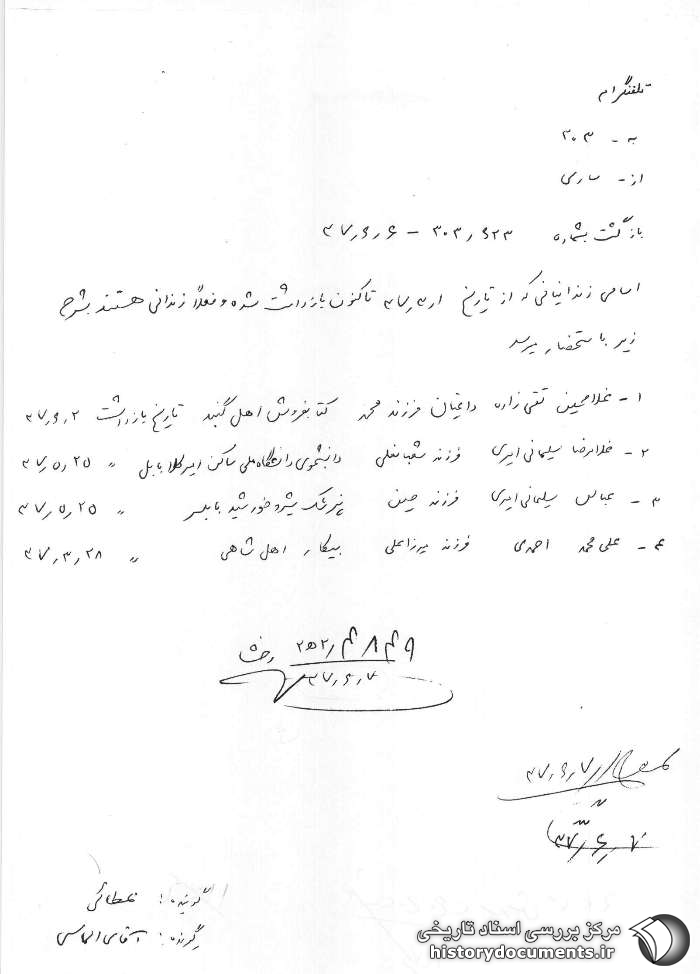 تلفنگرام
به - ۳۰۳
از - ساری
بازگشت بشماره ۳۰۳٫۶۲۳ - ۳۷٫۶٫۶
اسامی زندانیانی که از تاریخ ۳۷٫۳٫۱ تاکنون بازداشت شده و فعلاً زندانی هستند بشرح
زیر باستحضار میرسد
۱- غلامحسین تقی زاده داغیان فرزند محمد کتابفروش اهل گنبد تاریخ بازداشت ۳۷٫۶٫۲
۲- غلامرضا سلیمانی امیری فرزند شعبانعلی دانشجوی دانشگاه ملی ساکن امیرکلا بابل " ۳۷٫۵٫۲۵
۳- عباس سلیمانی امیری فرزند حسین پزشک شیر و خورشید بابلسر " ۳۷٫۵٫۲۵
۴- علی محمد احمدی فرزند میرزاعلی بیکار اهل شاهی " ۳۷٫۳٫۲۸
۲ﻫ۲٫۴۸۴۹
۳۷٫۶٫۷
۳۷٫۶٫۷
گوینده: عطائی
گیرنده: آقای الماسی
مرکز بررسی اسناد تاریخی
historydocuments.ir